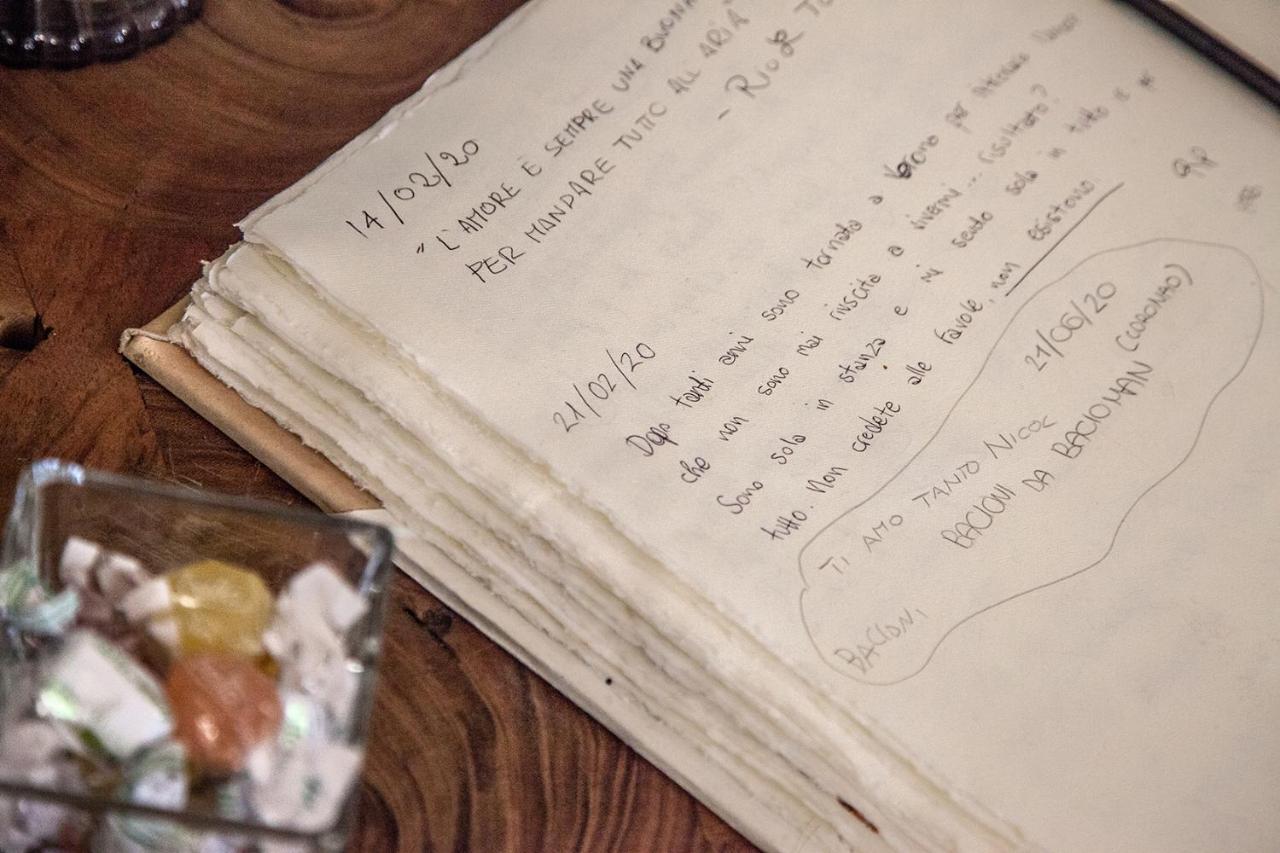 14/02/20
"L'AMORE È SEMPRE UNA BUONA
PER MANDARE TUTTO ALL'ARIA"
21/02/20
Dopo tanti anni sono tornata a Verona per
che non sono mai riuscita a viverni... risultato?
Sono sola in stanza e mi sento sola in tutto e x
tutto. Non credete alle favole, non esistono.
21/06/20
TI AMO TANTO NICOL
BACIONI DA BACIOMAN (CORONAO)
BACIONI